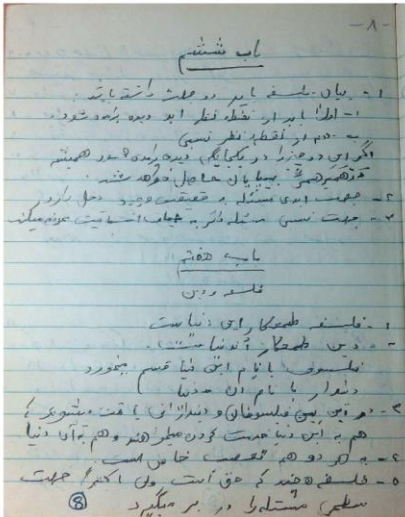 -۸-
باب ششم
۱- بیان فلسفه باید دو جهت داشته باشد
۱- اولاً باید از نقطه نظر ابد دیده شود.
ب- دوم از نقطه نظر نسبی
اگر این دو جزء در یکجا یکی دیده شود همیشه
بی پایان حاصل خواهد شد.
۲- جهت ابدی مسئله به حقیقت وجود دخل دارد
۳- جهت نسبی مسئله دیگر به
باب هفتم
فلسفه و دین
۱- فلسفه طلبکار این دنیاست
۲- دین طلبکار آن دنیا
فیلسوف با نام این دنیا قسم میخورد
دیندار با نام آن دنیا.
۳- در این بین فیلسوفان و دیندارانی یافت میشوند که
هم به این دنیا خدمت کردن میخواهند و هم به آن دنیا
۴- به هر دو هم خاص است
۵- فلسفه هر چند که حق است ولی اکثراً جهت
سطحی مسئله را در بر میگیرد
8